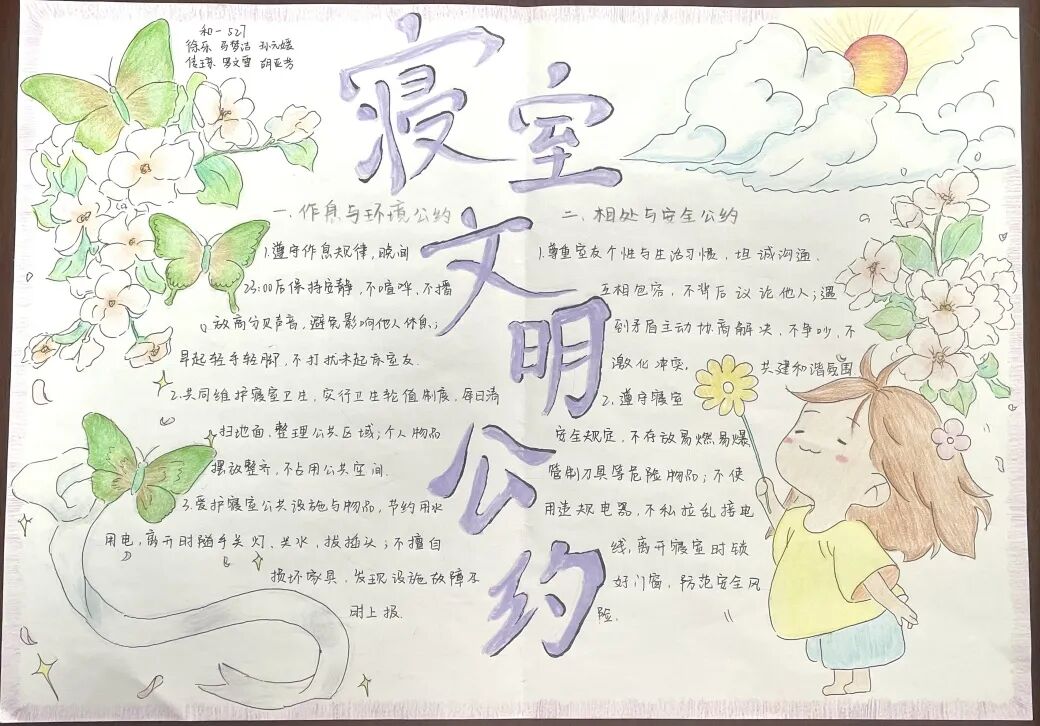 和一527
徐乐 马梦洁 孙元媛
罗文雪 胡亚芳
寝室文明公约
一.作息与环境公约
1.遵守作息规律,晚间
23:00后保持安静,不喧哗,不播
放高分贝声音,避免影响他人休息;
早起轻手轻脚,不打扰未起床室友.
2.共同维护寝室卫生,实行卫生轮值制度,每日清
扫地面,整理公共区域;个人物品
摆放整齐,不占用公共空间.
3.爱护寝室公共设施与物品,节约用水
用电,离开时随手关灯、关水,拔插头;不擅自
损坏家具,发现设施故障及
时上报.
二.相处与安全公约
1.尊重室友个性与生活习惯,坦诚沟通、
互相包容,不背后议论他人;遇
到矛盾主动协商解决,不争吵,不
激化冲突,共建和谐氛围
2.遵守寝室
安全规定,不存放易燃易爆
管制刀具等危险物品;不使
用违规电器,不私拉乱接电
线,离开寝室时锁
好门窗,防范安全风
险.